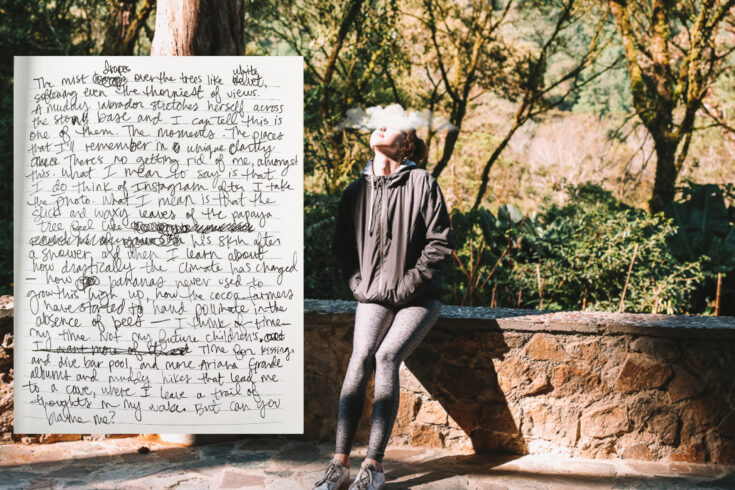 drapes
The mist over the trees like white velvet,
softening even the thorniest of views.
A muddy labrador stretches herself across
the stone base and I can tell this is
one of them. The moments. The places
that I'll remember in a unique clarity
There's no getting rid of me, amongst
this. What I mean to say is that
I do think of Instagram after I take
the photo. What I mean is that the
slick and waxy leaves of the papaya
tree feel like
his skin after
a shower, and when I learn about
how drastically the climate has changed
— how bananas never used to
grow this high up, how the cocoa farmers
have started to hand pollinate in the
absence of bees — I think of time —
my time. Not my future children's, not
I want more of it time for kissing,
and dive bar pool, and more Ariana Grande
albums and muddy hikes that lead me
to a cave, where I leave a trail of
thoughts in my wake. But can yer
blame me?